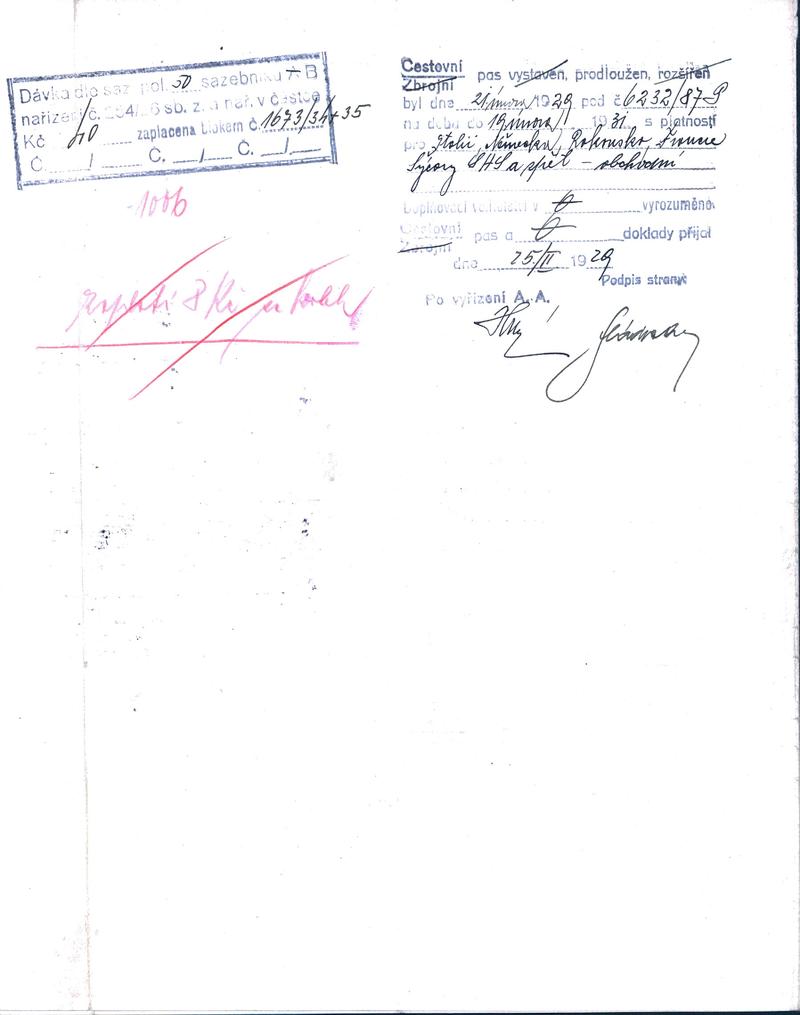 Dávka dle saz. pol. 50 sazebníku A B
nařízení č. 254/26 sb. z. a nař. v částce
Kč 40 zaplacena blokem č. 1673/34+35
Č. / Č. / Č. /
1006
zaplatí 8 Kč
Cestovní
Zbrojní
pas vystaven, prodloužen, rozšířen
byl dne 21 února 1929 pod č 6232/87-P
na dobu do 19 února 1931 s platností
pro Itálii, Německo, Rakousko, Francie
Švýcary SHS a zpět – obchodní
Doplňovací velitelství v 0 vyrozuměno.
Cestovní
Zbrojní
pas a 0 doklady přijal
dne 25/II 1929
Podpis strany:
Po vyřízení A. A.